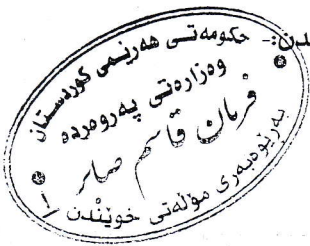 دن:-
حکومەتی هەرێمی کوردستان
وەزارەتی پەروەردە
فرمان قاسم صابر
بەڕێوەبەری مۆڵەتی خوێندن